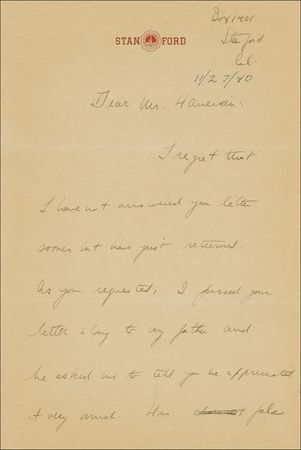 Box 1401
Stanford
Cal.
STANFORD
11/27/40
Dear Mr.
I regret that
I have not answered your letter
sooner but have just returned.
As you requested, I passed your
letter along to my father and
he asked me to tell you he appreciated
it very much. Was